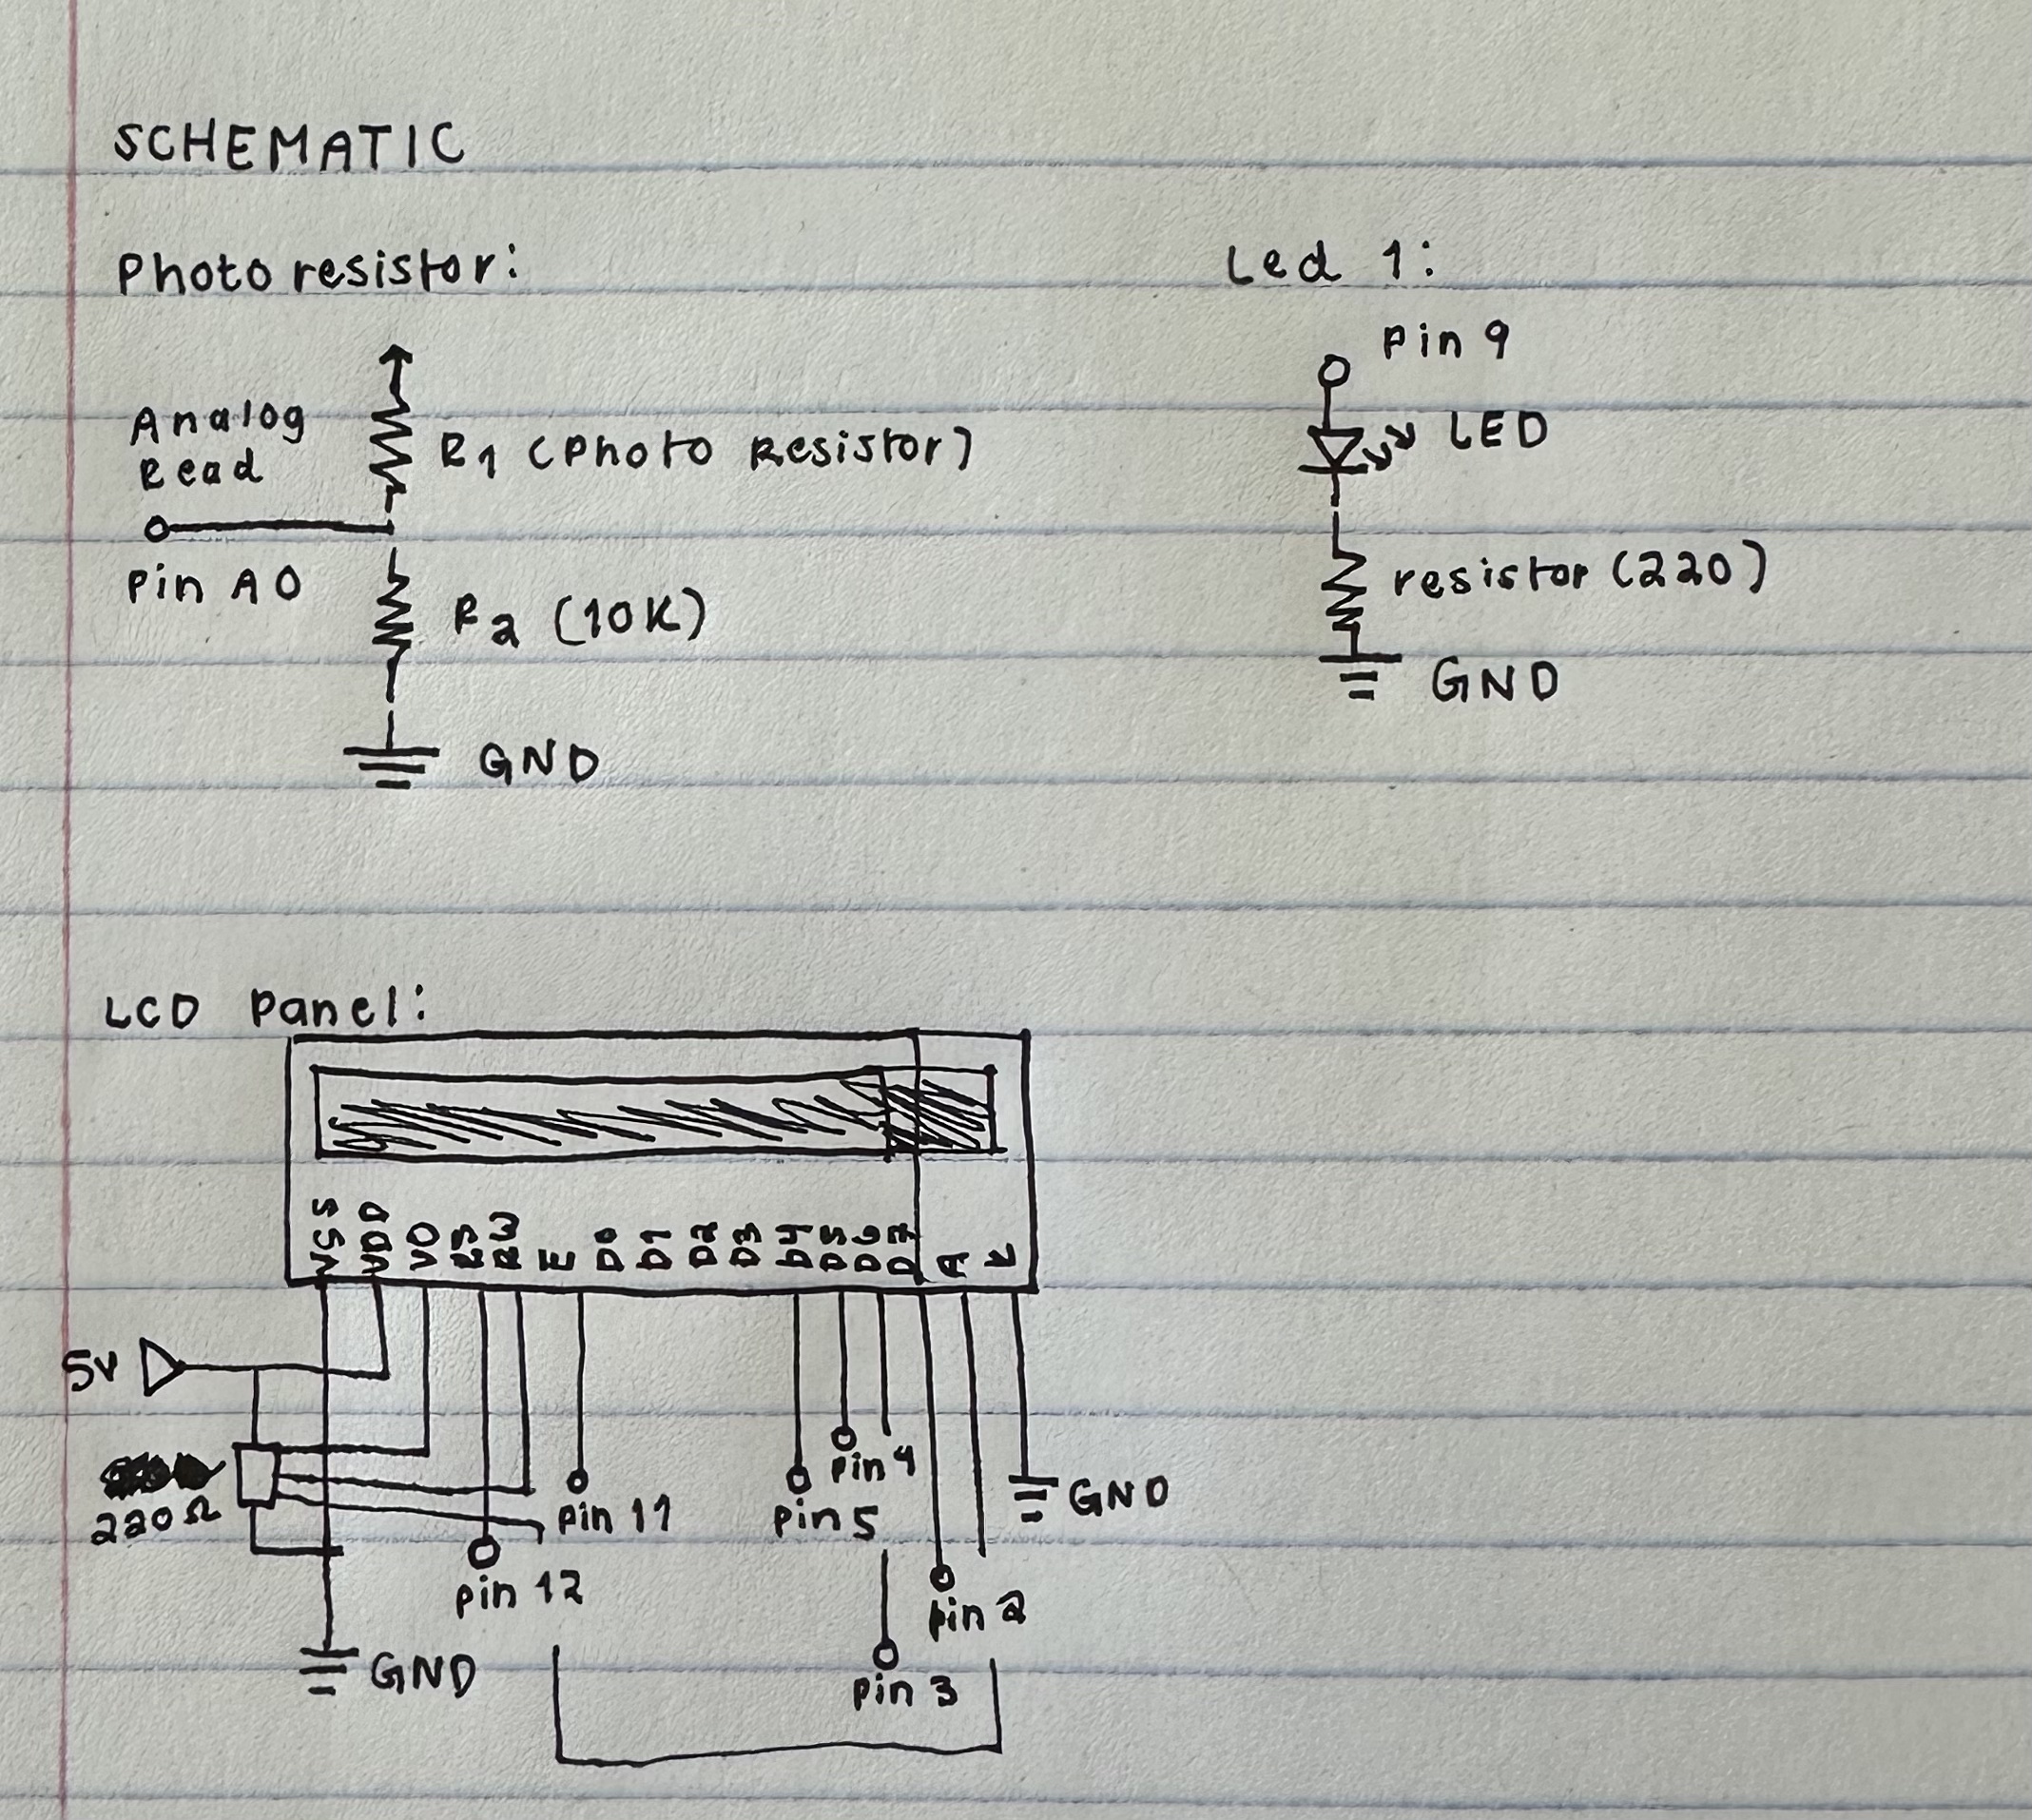 SCHEMATIC
Photo resistor:
Analog
Read
R1 (Photo Resistor)
Pin A0
R2 (10K)
GND
Led 1:
Pin 9
LED
resistor (220)
GND
LCD Panel:
VSS VDD VO RS RW E D0 D1 D2 D3 D4 D5 D6 D7 A K
5V
220Ω
Pin 11
Pin 12
GND
Pin 4
Pin 5
GND
Pin 2
Pin 3